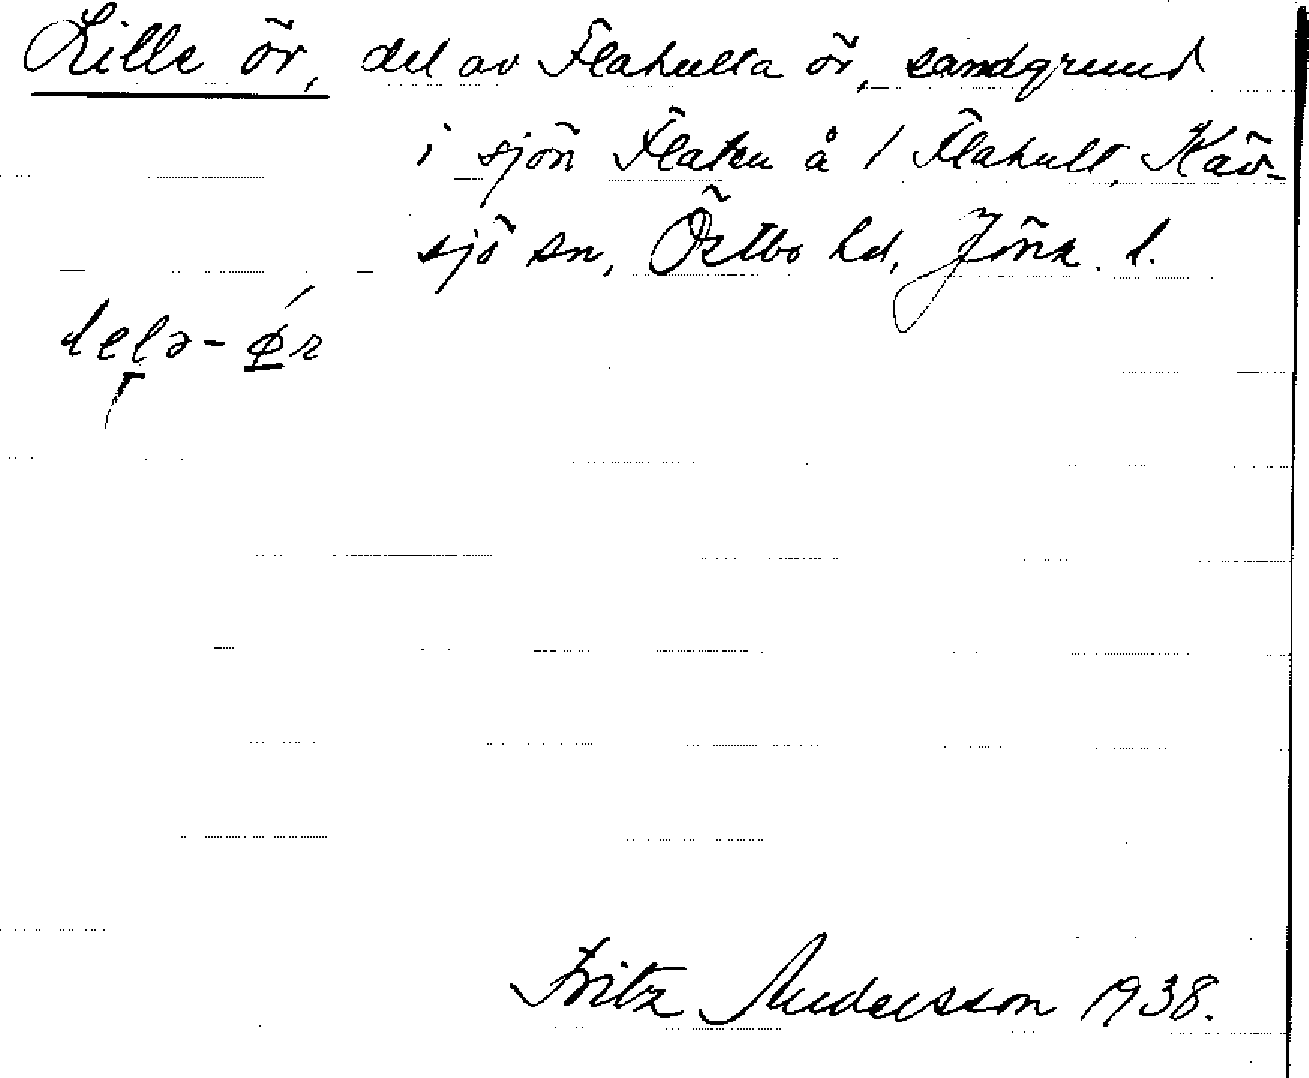 Lille ör, del av Flahulta ör, sandgrund
i sjön Flaten å / Flahult, Käv-
sjö sn, Östbo hd, Jönk. l.
lelə-ǿr
Fritz Andersson 1938.